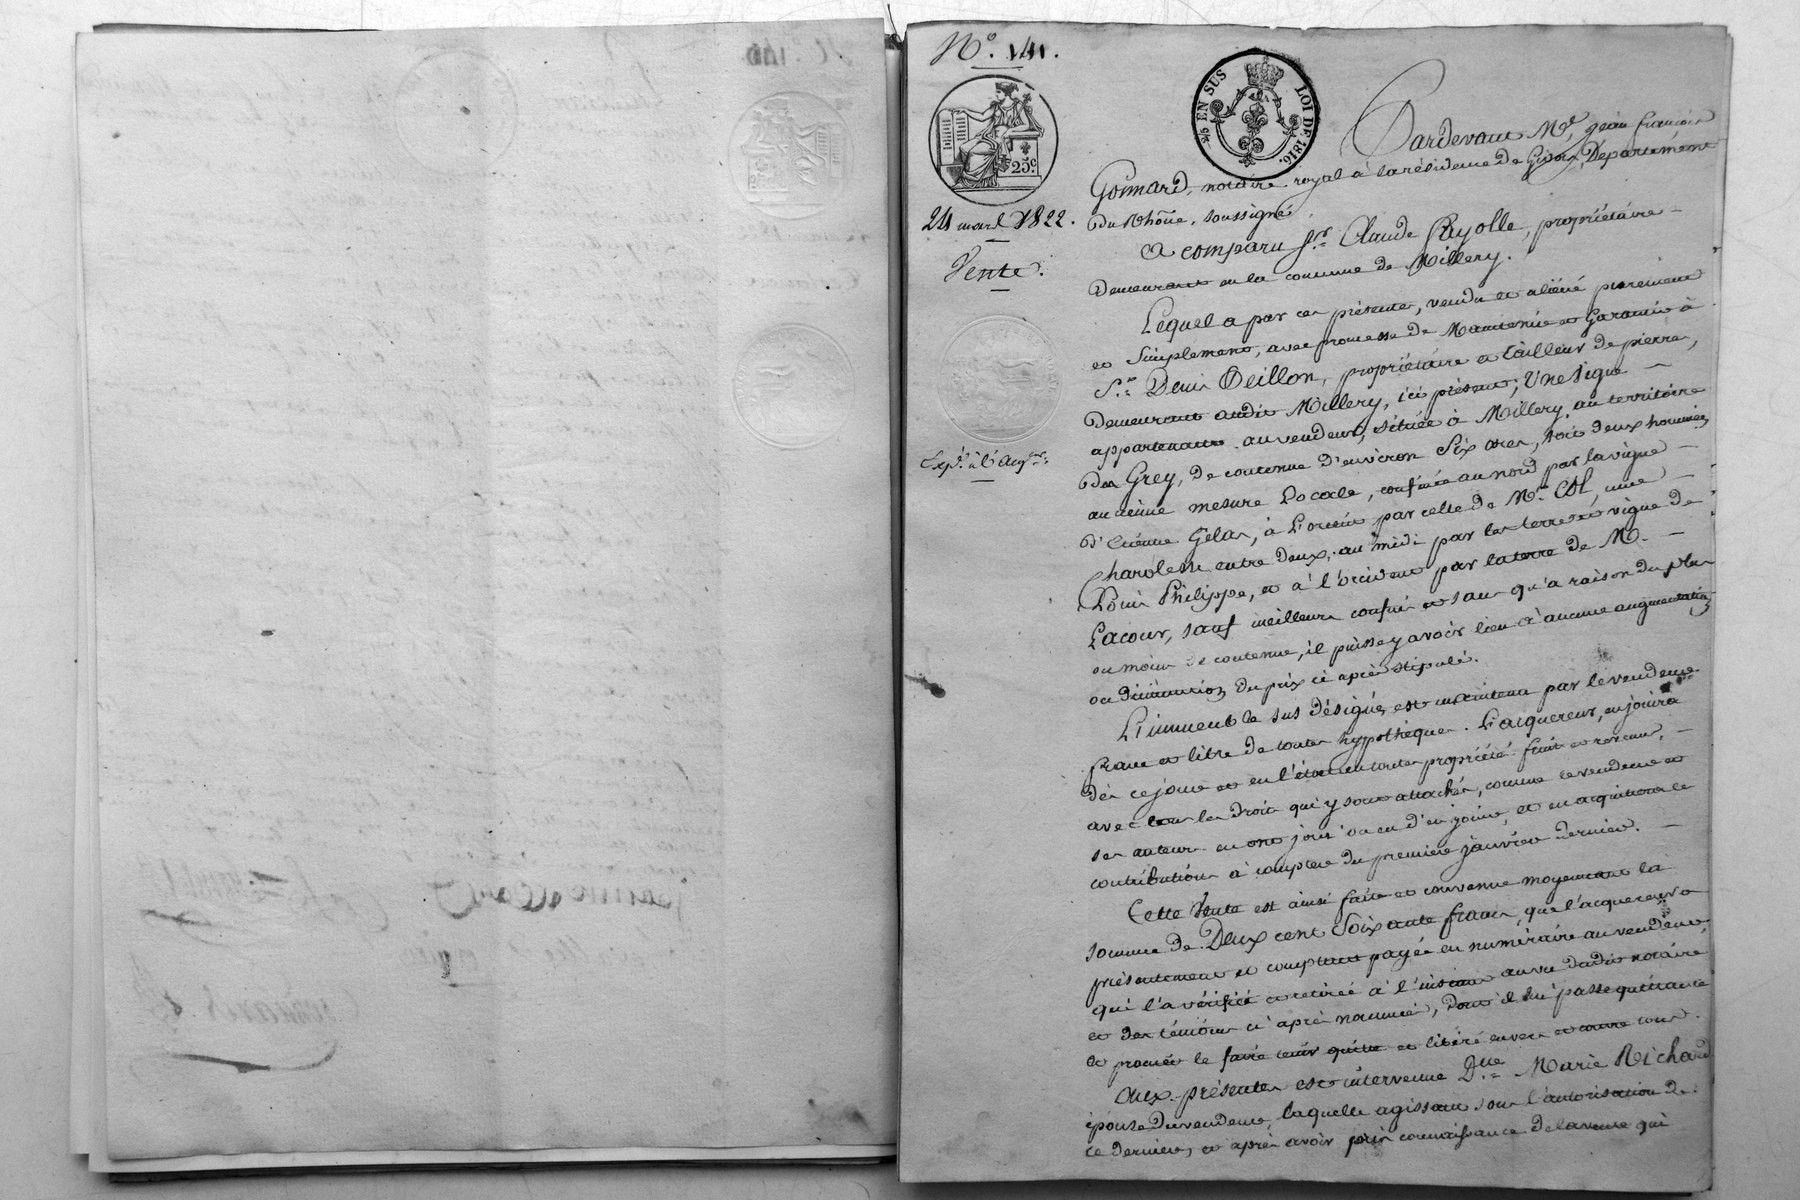 N.° 141.
25 EN SUS
LOI DE 1816.
25c
24 mars 1822.
Vente.
Expd. à l'acqr.
Pardevant Me. Jean françois
Gonnard, notaire royal à la résidence de Givors, Département
du Rhône, soussigné,
a comparu Sr. Claude Fayolle, propriétaire
demeurant en la commune de Millery.
Lequel a par ces présentes, vendu et aliéné purement
et simplement, avec promesse de maintenue et Garantie à
Sr. Denis Oeillon, propriétaire et tailleur de pierres,
demeurant audit Millery, ici présent; Une Vigne
appartenante au vendeur, située à Millery, au territoire
du Grey, de contenue d'environ Six ares, soit deux hommées
ancienne mesure Locale, confinée au nord par la vigne
d'Etienne Gelas, à l'orient par celle de Mr. Col, une
charolesse entre deux, au midi par les terre et vigne de
Louis Philippe, et à l'occident par la terre de M.
Lacour, sauf meilleurs confins et sans qu'a raison du plus
ou moins de contenue, il puisse y avoir lieu à aucune augmentation
ou diminution du prix ci après stipulé.
L'immeuble sus désigné, est maintenu par le vendeur
franc et libre de toutes hypothèques. L'acquereur, en jouira
dès ce jour et en l'état en toutes propriété fruits et revenus,
avec tous les droits qui y sont attachés, comme le vendeur et
ses auteurs en ont joui ou eu d'en jouir, et en acquittera les
contributions à compter du premier janvier dernier.
Cette Vente est ainsi faite et convenue moyennant la
somme de Deux cent Soixante francs, que l'acquereur a
présentement et comptant payée en numéraire au vendeur,
qui l'a vérifiée et retirée à l'instant au vu dudit notaire
et des témoins ci après nommés, dont il lui passe quittance
et promet le faire tenir quitte et libéré envers et contre tous.
Aux présentes est intervenue Dme. Marie Richard
épouse du vendeur, laquelle agissant sous l'autorisation de
ce dernier, et après avoir pris connaissance de la vente qui